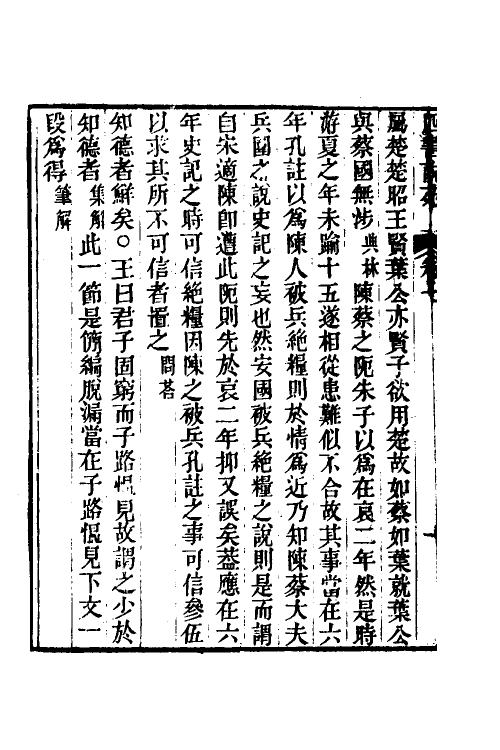 屬楚楚昭王賢葉公亦賢子欲用楚故如蔡如葉就葉公
與蔡國無涉 典林 陳蔡之阨朱子以爲在哀二年然是時
游夏之年未踰十五遂相從患難似不合故其事當在六
年孔註以爲陳人被兵絕糧則於情爲近乃知陳蔡大夫
兵圍之說史記之妄也然安國被兵絕糧之說則是而謂
自宋適陳卽遭此阨則先於哀二年抑又誤矣葢應在六
年史記之時可信絕糧因陳之被兵孔註之事可信參伍
以求其所不可信者置之 問荅
知德者鮮矣○王曰君子固窮而子路慍見故謂之少於
知德者 集解 此一節是僃編脫漏當在子路慍見下文一
段爲得 筆解